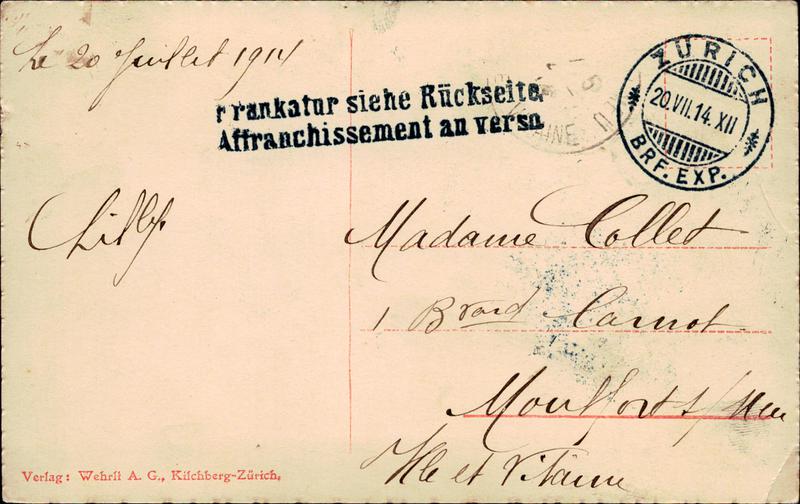 Le 20 Juillet 1914
Frankatur siehe Rückseite.
Affranchissement au verso
ZÜRICH
20.VII.14.XII
BRF. EXP.
Lilly
Madame Collet
1 Bvard Carnot
Montfort s/Meu
Ille et Vilaine
Verlag: Wehrli A. G., Kilchberg-Zürich.